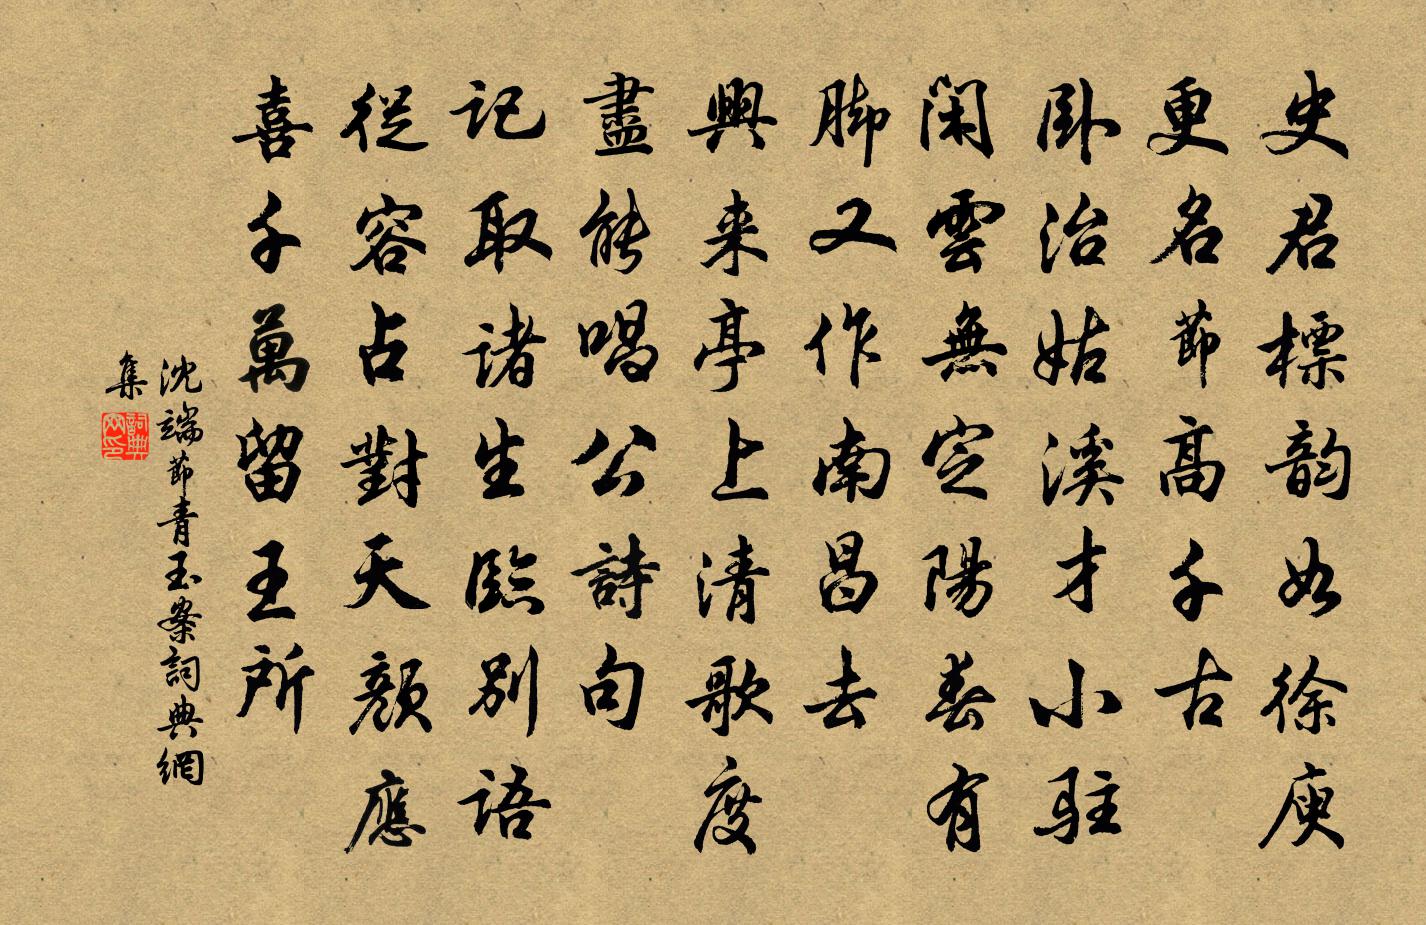 史君標韵如徐庾
更名節高千古
卧治姑溪才小駐
閑雲無定陽春有
脚又作南昌去
興来亭上清歌度
盡能唱公詩句
記取諸生臨別語
從容占對天顔應
喜千萬留王所
沈端節青玉案詞典網
集
詞典
网印